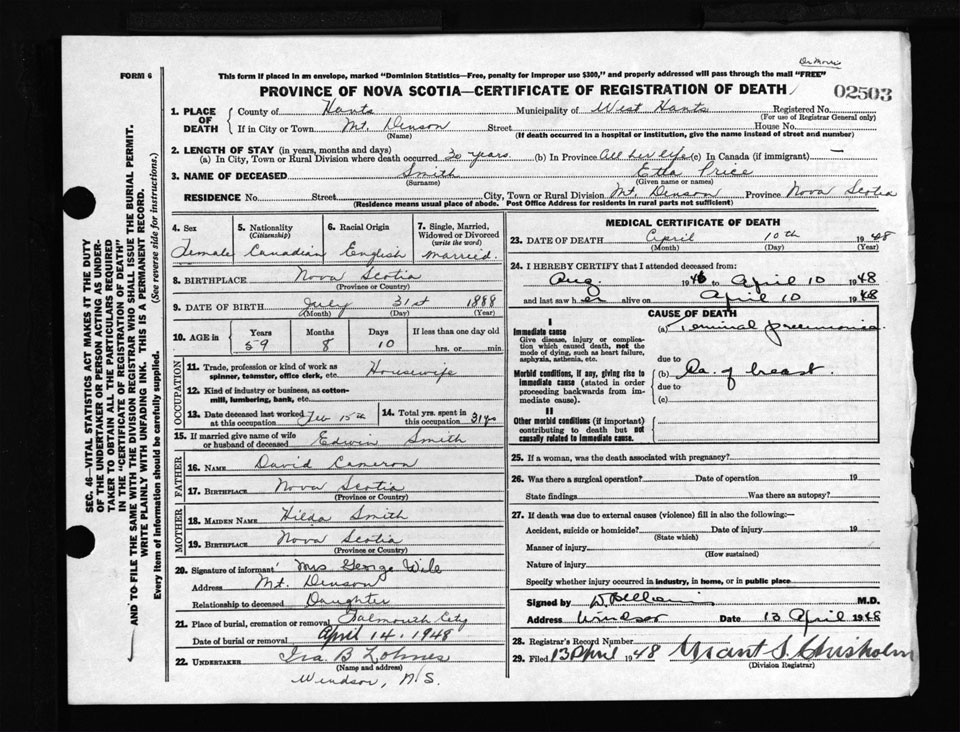 Dr Morris
FORM 6
This form if placed in an envelope, marked "Dominion Statistics—Free, penalty for improper use $300," and properly addressed will pass through the mail "FREE"
PROVINCE OF NOVA SCOTIA—CERTIFICATE OF REGISTRATION OF DEATH
02503
1. PLACE OF DEATH County of Hants Municipality of West Hants Registered No.
(For use of Registrar General only)
If in City or Town Mt. Denson Street House No.
(Name) (If death occurred in a hospital or institution, give the name instead of street and number)
2. LENGTH OF STAY (in years, months and days)
(a) In City, Town or Rural Division where death occurred 30 years. (b) In Province All her life (c) In Canada (if immigrant) —
3. NAME OF DECEASED Smith Etta Price
(Surname) (Given name or names)
RESIDENCE No. Street City, Town or Rural Division Mt. Denson Province Nova Scotia
(Residence means usual place of abode. Post Office Address for residents in rural parts not sufficient)
4. Sex 5. Nationality 6. Racial Origin 7. Single, Married, Widowed or Divorced
(Citizenship) (write the word)
Female Canadian English Married.
8. BIRTHPLACE Nova Scotia
(Province or Country)
9. DATE OF BIRTH July 31st 1888
(Month) (Day) (Year)
10. AGE in Years Months Days If less than one day old
59 8 10 hrs. or min.
OCCUPATION
11. Trade, profession or kind of work as spinner, teamster, office clerk, etc. Housewife
12. Kind of industry or business, as cotton-mill, lumbering, bank, etc.
13. Date deceased last worked at this occupation Feb 15th 14. Total yrs. spent in this occupation 31 yr
15. If married give name of wife or husband of deceased Edwin Smith
FATHER
16. NAME David Cameron
17. BIRTHPLACE Nova Scotia
(Province or Country)
MOTHER
18. MAIDEN NAME Hilda Smith
19. BIRTHPLACE Nova Scotia
(Province or Country)
20. Signature of informant Mrs George Wile
Address Mt. Denson
Relationship to deceased Daughter
21. Place of burial, cremation or removal Falmouth
Date of burial or removal April 14. 1948
22. UNDERTAKER Ira B Lohnes
(Name and address)
Windsor, N.S.
MEDICAL CERTIFICATE OF DEATH
23. DATE OF DEATH April 10th 1948
(Month) (Day) (Year)
24. I HEREBY CERTIFY that I attended deceased from:
Aug. 1946 to April 10 1948
and last saw her alive on April 10 1948
CAUSE OF DEATH
I
Immediate cause (a) Terminal pneumonia
Give disease, injury or complication which caused death, not the mode of dying, such as heart failure, asphyxia, asthenia, etc.
due to
Morbid conditions, if any, giving rise to immediate cause (stated in order proceeding backwards from immediate cause).
(b) Ca. of breast.
due to
(c)
II
Other morbid conditions (if important) contributing to death but not causally related to immediate cause.
25. If a woman, was the death associated with pregnancy?
26. Was there a surgical operation? Date of operation 19
State findings Was there an autopsy?
27. If death was due to external causes (violence) fill in also the following:—
Accident, suicide or homicide? Date of injury 19
(State which)
Manner of injury
(How sustained)
Nature of injury
Specify whether injury occurred in industry, in home, or in public place
Signed by M.D.
Address Windsor Date 13 April 1948
28. Registrar's Record Number
29. Filed 13 April 1948 Grant S. Chisholm
(Division Registrar)
SEC. 46—VITAL STATISTICS ACT MAKES IT THE DUTY
OF THE UNDERTAKER OR PERSON ACTING AS UNDER-
TAKER TO OBTAIN ALL THE PARTICULARS REQUIRED
IN THE "CERTIFICATE OF REGISTRATION OF DEATH"
AND TO FILE THE SAME WITH THE DIVISION REGISTRAR WHO SHALL ISSUE THE BURIAL PERMIT.
WRITE PLAINLY WITH UNFADING INK. THIS IS A PERMANENT RECORD.
Every item of information should be carefully supplied. (See reverse side for instructions.)